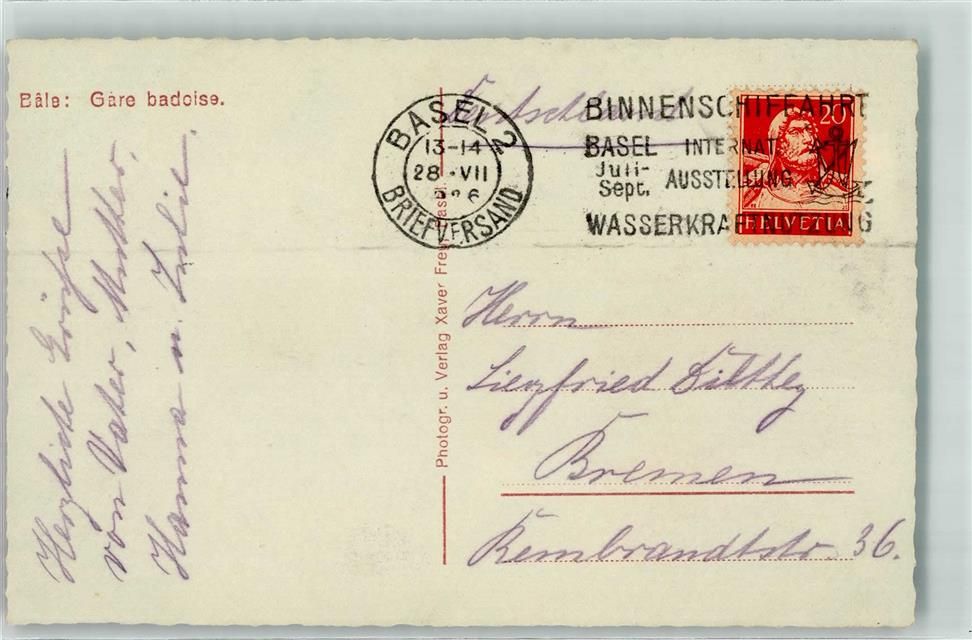 Bâle: Gare badoise.
Herzliche Grüsse
von Vater, Mutter,
Hanna u. Julie.
Photogr. u. Verlag Xaver Frey, Basel
Deutschland
BASEL 2
13-14
28.VII
BRIEFVERSAND
BINNENSCHIFFAHRT
BASEL INTERNAT.
Juli-
Sept. AUSSTELLUNG
WASSERKRAFTNUTZUNG
20
HELVETIA
Herrn
Siegfried Dilthey
Bremen
Rembrandtstr. 36.